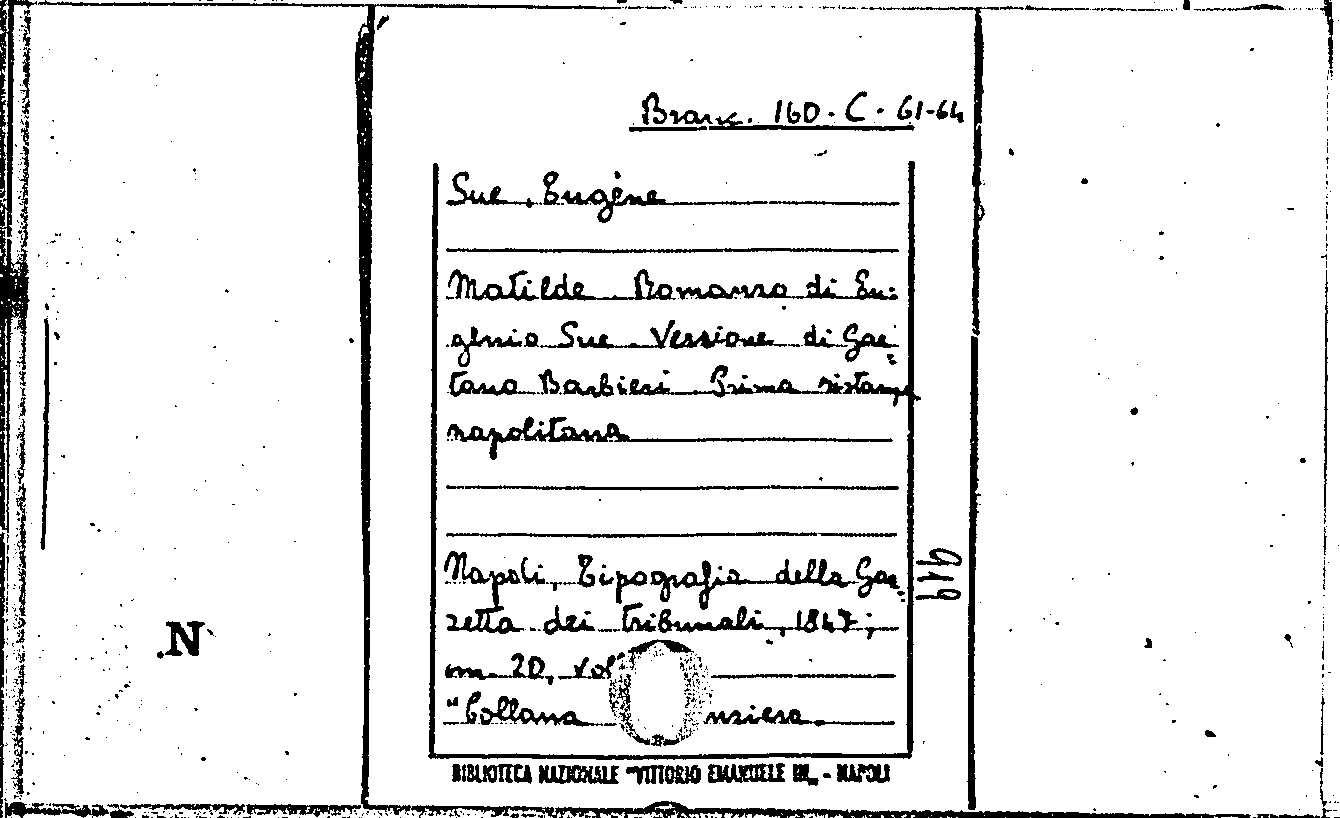 Branc. 160. C. 61-64
Sue, Eugène
Matilde. Romanzo di Eu-
genio Sue. Versione di Gae-
tano Barbieri. Prima ristampa
napolitana
Napoli, Tipografia della Gaz-
zetta dei tribunali, 1847;
cm. 20, vol
"Collana nziera.
919
N
BIBLIOTECA NAZIONALE "VITTORIO EMANUELE III" - NAPOLI